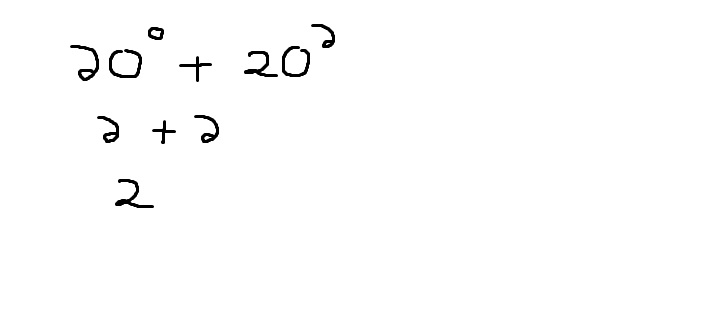 20⁰ + 20²
2 + 2
2